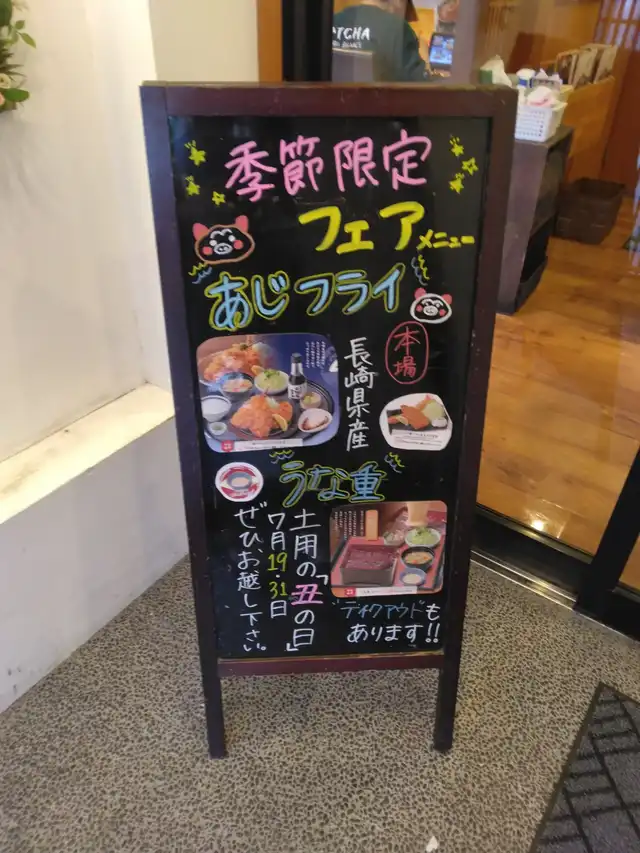 TCHA
季節限定
フェア メニュー
あじフライ
本場
長崎県産
うな重
土用の「丑の日」
7月19・31日
ぜひ、お越し下さい。
テイクアウトも
あります!!